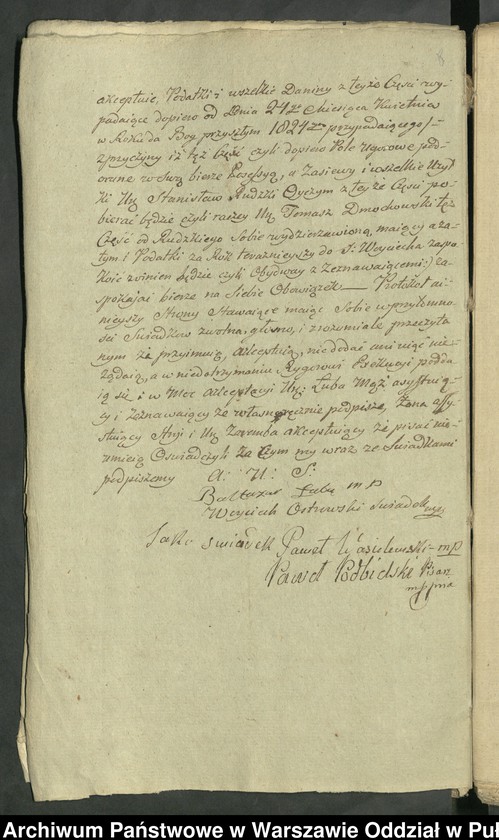 8
akceptuie, Podatki i wszelkie Daniny z teyże Części wy-
padaiące dopiero od Dnia 24go Miesiąca Kwietnia
w Roku da Bog przyszłym 1824tym przypadaiącego /-
z przyczyny iż też Część czyli dopiero Pole Ugorowe pod-
orane w Swą bierze Possessyą, a Zasiewy i wszelkie Użyt
ki Ur. Stanisław Rudzki Oyczym z teyże Części po-
bierać będzie czyli raczey Ur. Tomasz Dmochowski też
Część od Rudzkiego Sobie wydzierżawioną maiący a za-
tym i Podatki za Rok teraźnieyszy do S: Woyciecha zaspo
koić winien będzie czyli Obydway z Zeznawaiącemi za-
spokaiać bierze na Siebie Obowiązek — Protokół ni-
nieyszy Strony Stawaiące maiąc Sobie w przytomno-
ści Świadków zwolna, głośno, i zrozumiale przeczyta
nym że przyimuią, akceptuią, nic dodać ani uiąć nie
żądaią, a w niedotrzymaniu Rygorowi Exekucyi podda
ią się i w Moc akceptacyi Ur: Łuba Mąż asystuią-
cy i zeznawaiący że własnoręcznie podpisze, Żona assy-
stuiący Anji i Ur. Zaremba akceptuiący że pisać nie-
umieią Oświadczyli za czym my wraz ze Świadkami
podpisujemy A: U: S:
Baltazar Łuba mp
Woyciech Ostrowski Świadek mp
Jako Swiadek Paweł Wasilewski mp
Paweł Podbielski Pisarz
mppria
Archiwum Państwowe w Warszawie Oddział w Puł